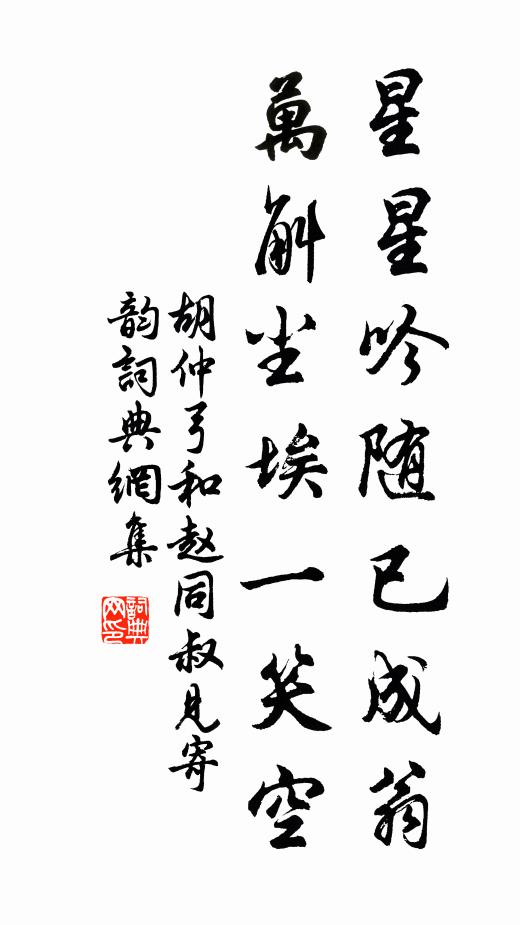 星星吟随已成翁
萬斛尘埃一笑空
胡仲弓和赵同叔见寄
韵詞典網集
詞典
网印